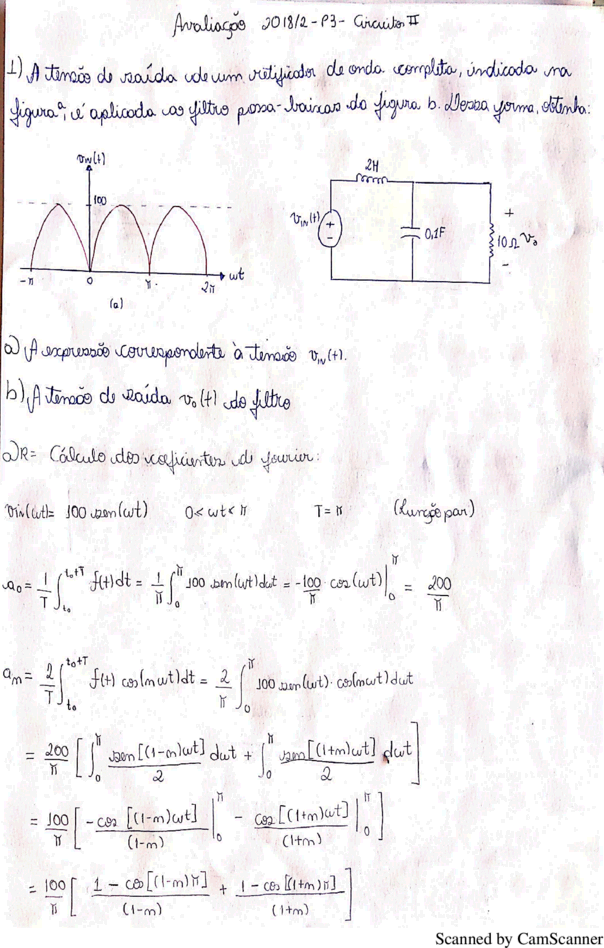 Avaliação 2018/2 - P3 - Circuitos II
1) A tensão de saída de um retificador de onda completa, indicada na
figura a, é aplicada ao filtro passa-baixas da figura b. Dessa forma, obtenha:
vIN(t)
100
-π 0 π 2π ωt
(a)
2H
vIN(t) + -
0,1F
+
10Ω vo
-
a) A expressão correspondente à tensão vIN(t).
b) A tensão de saída vo(t) do filtro
a) R= Cálculo dos coeficientes de fourier:
vin(ωt)= 100 sen(ωt) 0<ωt<π T=π (função par)
ao = 1/T ∫_{to}^{to+T} f(t)dt = 1/π ∫_0^π 100 sen(ωt)dωt = -100/π · cos(ωt)|_0^π = 200/π
an = 2/T ∫_{to}^{to+T} f(t) cos(nωt)dt = 2/π ∫_0^π 100 sen(ωt)·cos(nωt)dωt
= 200/π [ ∫_0^π sen[(1-n)ωt]/2 dωt + ∫_0^π sen[(1+n)ωt]/2 dωt ]
= 100/π [ -cos[(1-n)ωt]/(1-n) |_0^π - cos[(1+n)ωt]/(1+n) |_0^π ]
= 100/π [ 1-cos[(1-n)π]/(1-n) + 1-cos[(1+n)π]/(1+n) ]
Scanned by CamScanner